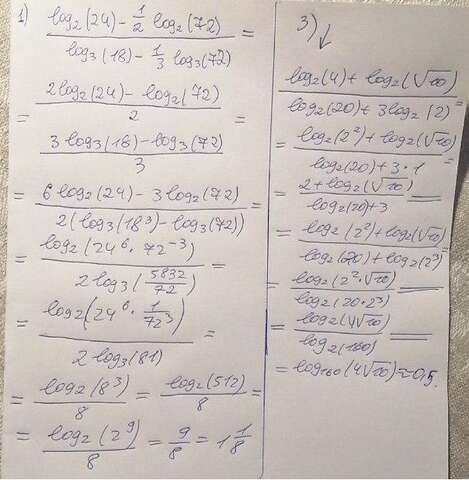 1) (log₂(24) - 1/2 log₂(72)) / (log₃(18) - 1/3 log₃(72)) =
= ((2log₂(24) - log₂(72)) / 2) / ((3log₃(18) - log₃(72)) / 3) =
= (6log₂(24) - 3log₂(72)) / (2(log₃(18³) - log₃(72))) =
= log₂(24⁶ · 72⁻³) / (2log₃(5832/72)) =
= log₂(24⁶ · 1/72³) / (2log₃(81)) =
= log₂(8³) / 8 = log₂(512) / 8 =
= log₂(2⁹) / 8 = 9/8 = 1 1/8
3) ↓
(log₂(4) + log₂(√10)) / (log₂(20) + 3log₂(2)) =
= (log₂(2²) + log₂(√10)) / (log₂(20) + 3·1) =
= (2 + log₂(√10)) / (log₂(20) + 3)
= (log₂(2²) + log₂(√10)) / (log₂(20) + log₂(2³))
= log₂(2²·√10) / log₂(20·2³) =
= log₂(4√10) / log₂(160) =
= log₁₆₀(4√10) ≈ 0,5.